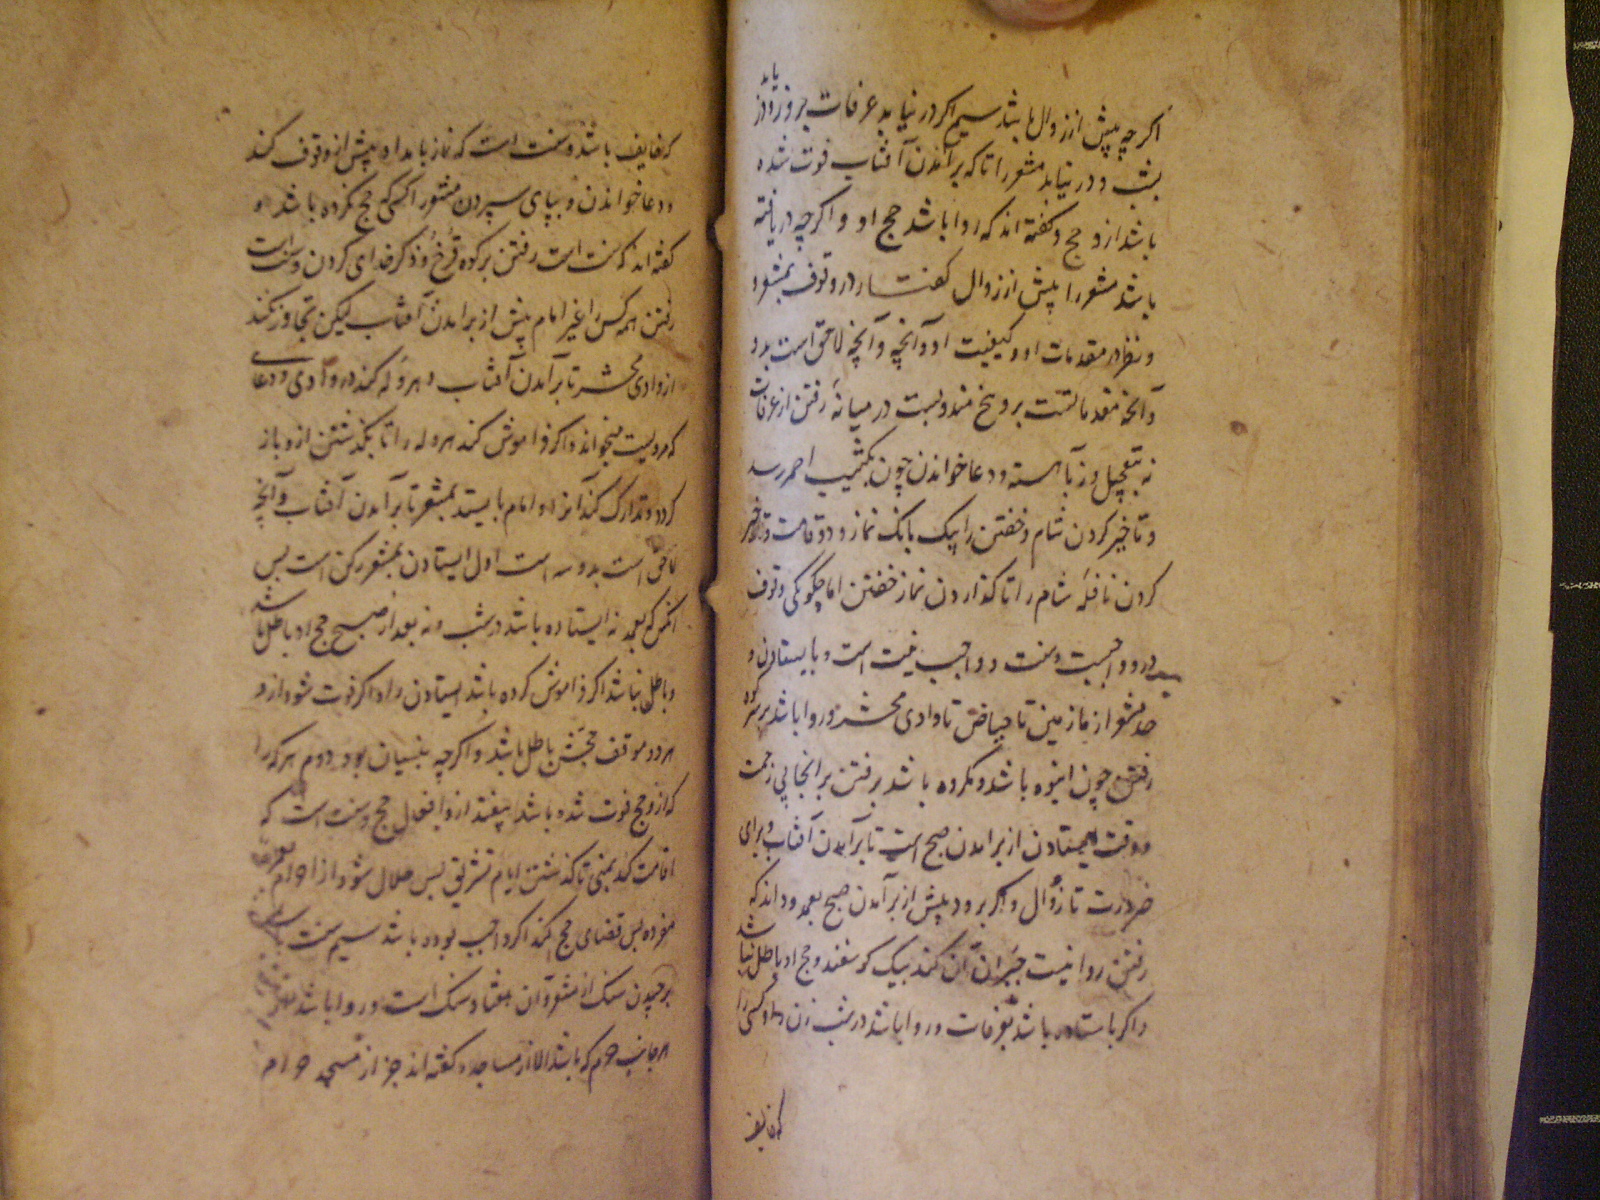 اگر چه پیش از زوال باشد سیم اگر در نیابد عرفات بروز و نیز یابد
بشب و در نیابد مشعر را تا که برآمدن آفتاب فوت شده
باشد ازو حج و گفته اند که روا باشد حج او و اگر چه دریافته
باشد مشعر را پیش از زوال گفتار در وقوف بمشعر
و نظر در مقدمات او و کیفیت او و آنچه لاحق است بدو
و آنچه مقدماتست بر وی پنج مندوبست در میانه رفتن از عرفات
نه بتعجیل و نه آهسته و دعا خواندن چون بکثیب احمر رسد
و تاخیر کردن شام و خفتن را بیک بانک نماز و دو قامت و تاخیر
کردن نافله شام را تا گذاردن نماز خفتن اما چگونگی وقوف
درو واجبست و سنت و واجب نیت است و بایستادن و
حد مشعر از مازمین تا حیاض تا وادی محسر و روا باشد بر کوه
رفتن چون انبوه باشد و مکروه باشد برفتن بر انجا بی زحمت
و وقت ایستادن از برامدن صبح است تا برآمدن آفتاب و برای
ضرورت تا زوال و اگر برود پیش از برآمدن صبح بعمد و داند که
رفتن روا نیست جبران آن کند بیک گوسفند و حج او باطل نباشد
و اگر باستاده باشد بعرفات و روا باشد در شب زن را و کسی را
که خایف
که خایف باشد و سنت است که نماز بامداد پیش از وقوف کند
و دعا خواندن و بپای سپردن مشعر را کسی که حج نکرده باشد و
گفته اند که سنت است رفتن بر کوه قزح و ذکر خدای کردن و سنت است
رفتن همه کس را غیر امام پیش از برامدن آفتاب لیکن تجاوز نکند
از وادی محسر تا برآمدن آفتاب و هروله کند در وادی و دعای
که مرویست میخواند و اگر فراموش کند هروله را تا بگذشتن ازو باز
گردد و تدارک کند آنرا و امام بایستد بمشعر تا برآمدن آفتاب و آنچه
لاحق است بدو سه است اول ایستادن بمشعر رکن است پس
انکس که بعمد نه ایستاده باشد در شب و نه بعد از صبح حج او باطل باشد
و باطل نباشد اگر فراموش کرده باشد ایستادن را و اگر فوت شود ازو
هر دو موقف حجش باطل باشد و اگر چه بنسیان بود دوم هر که را
که ازو حج فوت شده باشد بیفتد ازو افعال حج و سنت است که
اقامت کند بمنی تا گذشتن ایام تشریق پس حلال شود از احرام بعمره
مفرده پس قضای حج کند اگر واجب بوده باشد سیم سنت باشد
برچیدن سنک از مشعر و آن هفتاد سنک است و روا باشد
هر جانب حرم که باشد الا از مساجد و گفته اند جز از مسجد حرام